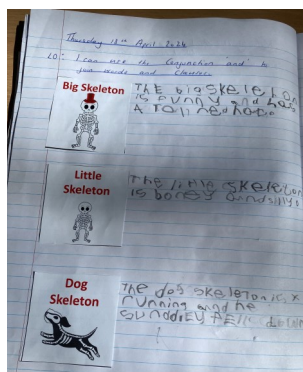 Thursday 18th April 2024
LO: I can use the conjunction and to
join words and clauses.
Big Skeleton
The big skeleton
is funny and has
a
Little
Skeleton
The little skeleton
is boney and silly
Dog
Skeleton
The dog skeleton is
running and he
sunddley fell down